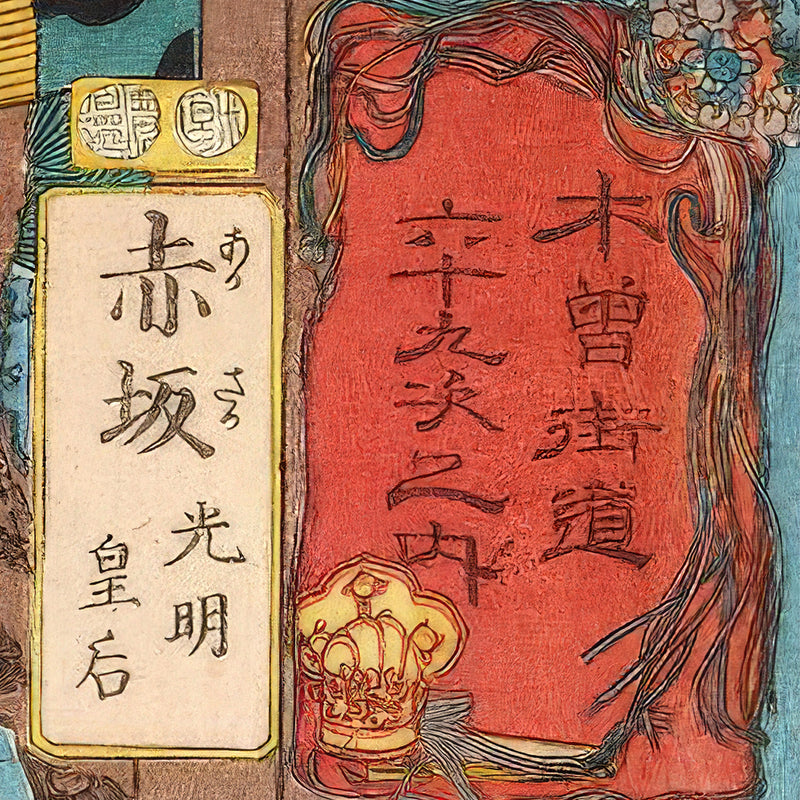 木曾街道
六十九次之内
赤坂
あか
さか
光明
皇后